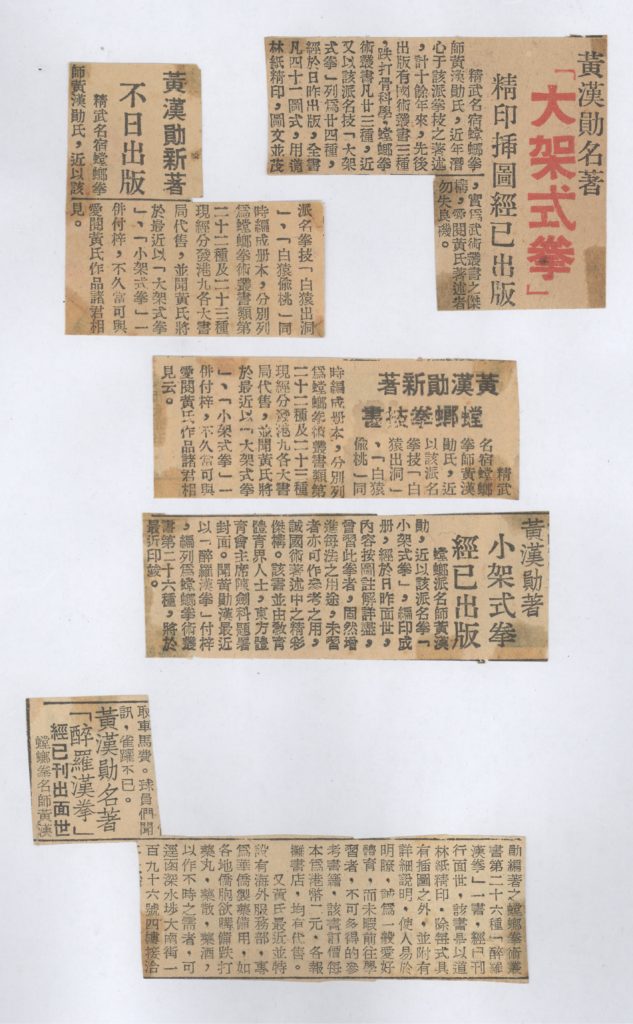 黃漢勛名著
「大架式拳」
精印揷圖經已出版
精武名宿螳螂拳
師黃漢勛氏，近年潛
心于該派拳技之著述
，計十餘年來，先後
出版有國術叢書三種
，跌打骨科學，螳螂拳
術叢書凡廿三種，近
又以該派名技「大架
式拳」列爲廿四種，
經於日昨出版，全書
凡四十一圖式，用道
林紙精印，圖文並茂
，實爲武術叢書之傑
構，愛閱黃氏著述者
勿失良機。
黃漢勛新著
不日出版
精武名宿螳螂拳
師黃漢勛氏，近以該
派名拳技「白猿出洞
」、「白猿偷桃」同
時編成册本，分別列
爲螳螂拳術叢書類第
二十二種及二十三種
現經分發港九各大書
局代售，並聞黃氏將
於最近以「大架式拳
」、「小架式拳」一
併付梓，不久當可與
愛閱黃氏作品諸君相
見。
黃漢勛新著
螳螂拳技書
精武
名宿螳螂
拳師黃漢
勛氏，近
以該派名
拳技「白
猿出洞」
、「白猿
偷桃」同
時編成册本，分別列
爲螳螂拳術叢書類第
二十二種及二十三種
現經分發港九各大書
局代售，並聞黃氏將
於最近以「大架式拳
」、「小架式拳」一
併付梓，不久當可與
愛閱黃氏作品諸君相
見云。
黃漢勛著
小架式拳
經已出版
螳螂派名師黃漢
勛，近以該派名拳「
小架式拳」，編印成
册，經於日昨面世，
內容按圖註解詳盡，
曾習此拳者，固然增
進每法之用途，未習
者亦可作參考之用，
誠國術著述中之精彩
傑構。該書並由教育
體育界人士，東方體
育會主席陳劍科題署
封面。聞黃勛漢最近
以「醉羅漢拳」付梓
，編列爲螳螂拳術叢
書第二十六種，將於
最近印竣。
取車馬費。球員們聞
訊，雀躍不已。
黃漢勛名著
「醉羅漢拳」
經已刊出面世
螳螂拳名師黃漢
勛編著之螳螂拳術叢
書第二十六種「醉羅
漢拳」一書，經已刊
行面世，該書是以道
林紙精印，除每式具
有揷圖之外，並附有
詳細說明，使人易於
明瞭，誠爲一般愛好
體育，而未暇前往學
習者，不可多得的參
考書籍，該書訂價每
本爲港幣二元，各報
攤書店，均有代售。
又黃氏最近並特
設有海外服務部，專
爲華僑製藥備用，如
各地僑胞欲購備跌打
藥丸，藥散，藥酒，
以作不時之需者，可
逕函深水埗大南街一
百九十六號四樓接洽